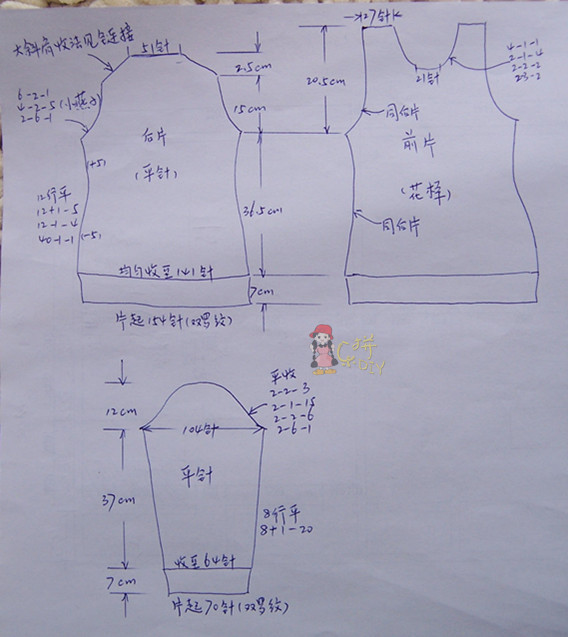 大斜肩收法见全连接
51针
2.5cm
15cm
6-2-1
4-2-5(小燕子)
2-6-1
后片
(平针)
(+5)
12行平
12+1-5
12-1-4
40-1-1(-5)
36.5cm
均匀收至141针
7cm
片起154针(双罗纹)
→27针
20.5cm
21针
4-1-1
2-1-4
2-2-2
2-3-2
同后片
前片
(花样)
同后片
12cm
平收
2-2-3
2-1-15
2-2-6
2-6-1
104针
平针
37cm
8行平
8+1-20
收至64针
7cm
片起70针(双罗纹)